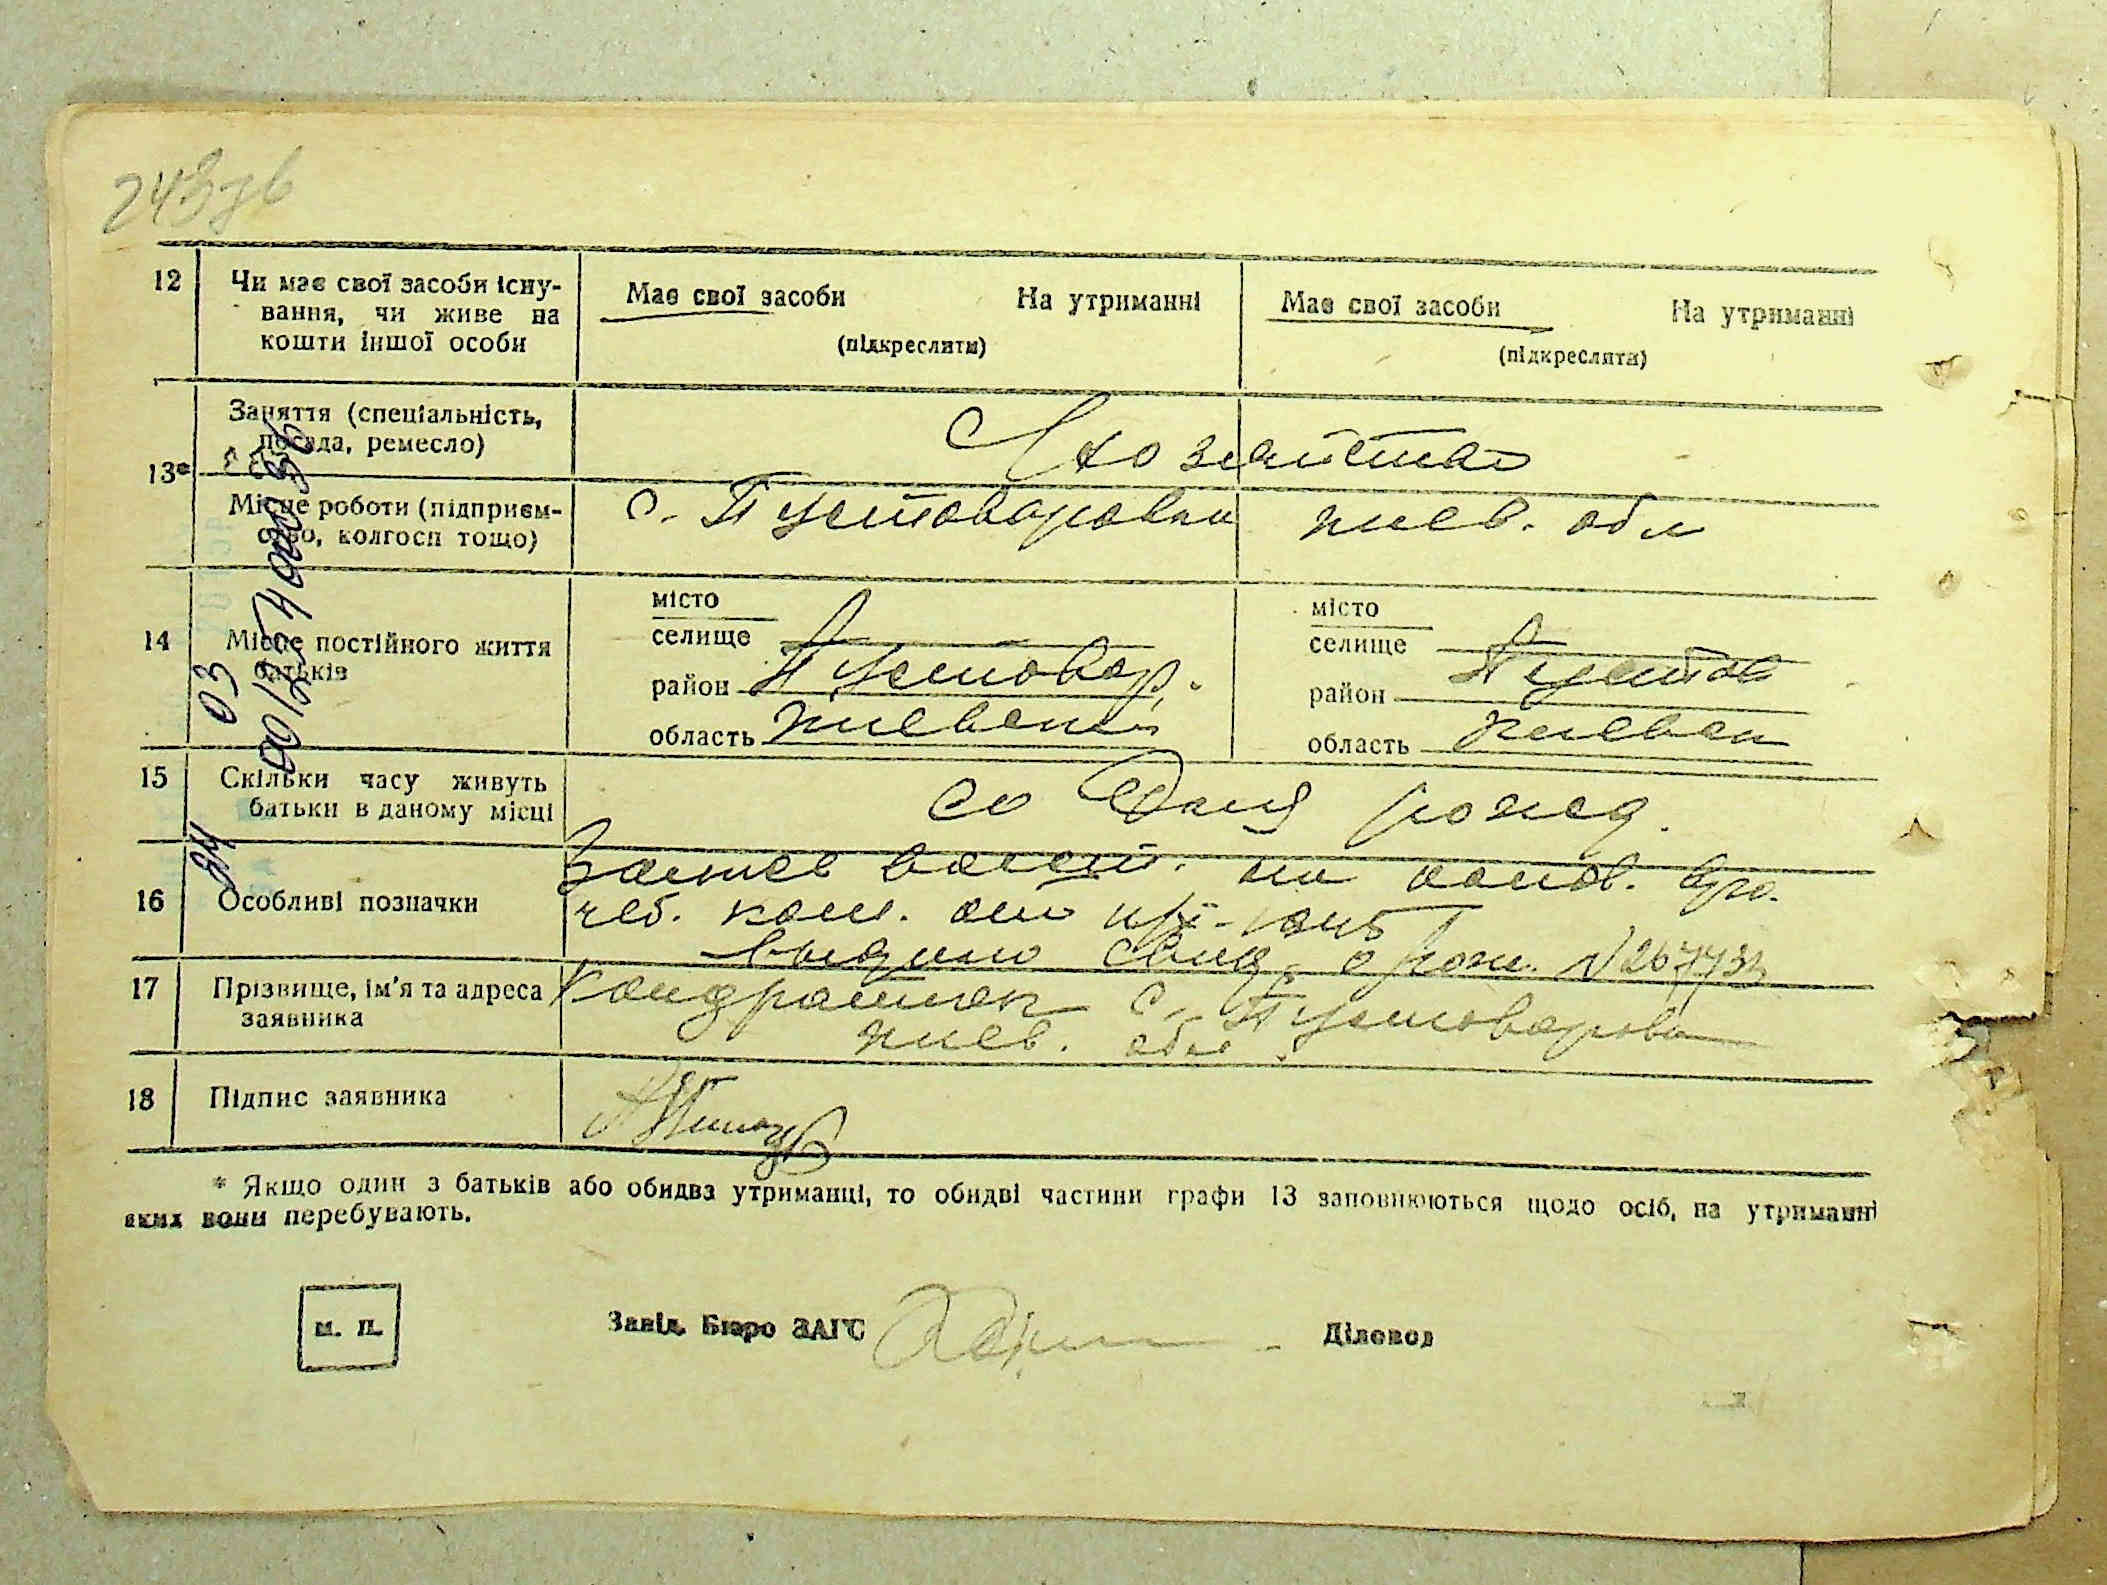 243зв
12 Чи має свої засоби існу-
вання, чи живе на
кошти іншої особи
Має свої засоби На утриманні
(підкреслити)
Має свої засоби На утриманні
(підкреслити)
13* Заняття (спеціальність,
посада, ремесло)
С/хозяйство
Місце роботи (підприєм-
ство, колгосп тощо)
с. Пустоваровка киев. обл
14 Місце постійного життя
батьків
місто
селище
район Пустовар.
область киевский
місто
селище
район Пустов
область киевск
15 Скільки часу живуть
батьки в даному місці
со дня рожд.
16 Особливі позначки
Запись восст. на основ. вра.
чеб. ком. от
выдано свид. о рож. N 267732
17 Прізвище, ім'я та адреса
заявника
с. Пустоваровка
киев. обл.
18 Підпис заявника
* Якщо один з батьків або обидва утриманці, то обидві частини графи 13 заповнюються щодо осіб, на утриманні
яких вони перебувають.
м. п.
Завід. Бюро ЗАГС
Діловод
03